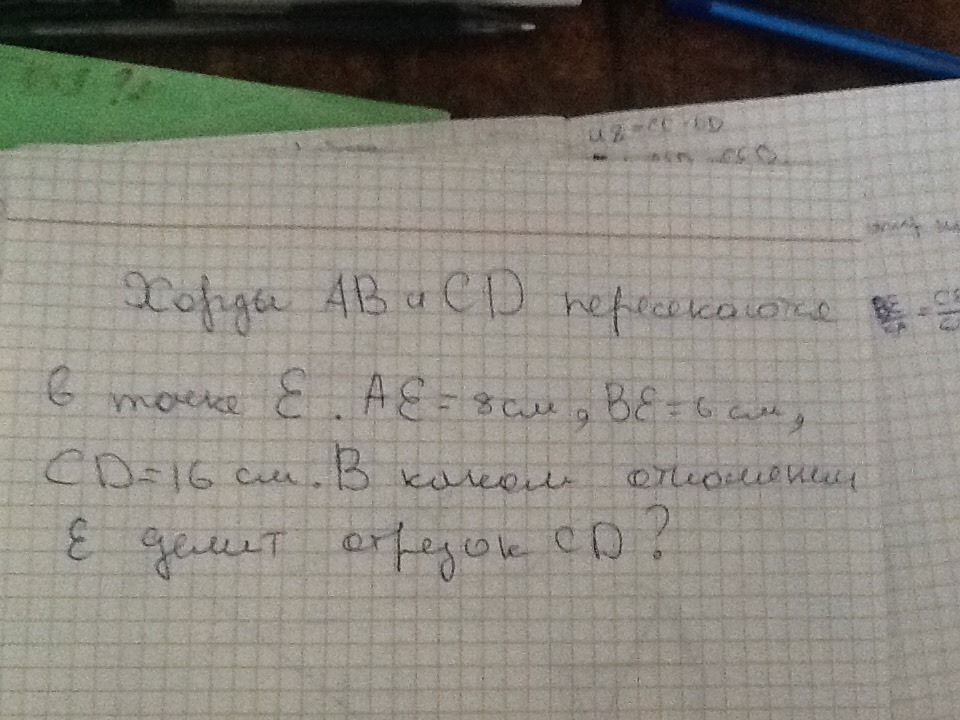 Хорды АВ и CD пересекаются
в точке Е. АЕ = 8 см, ВЕ = 6 см,
CD = 16 см. В каком отношении
Е делит отрезок CD?